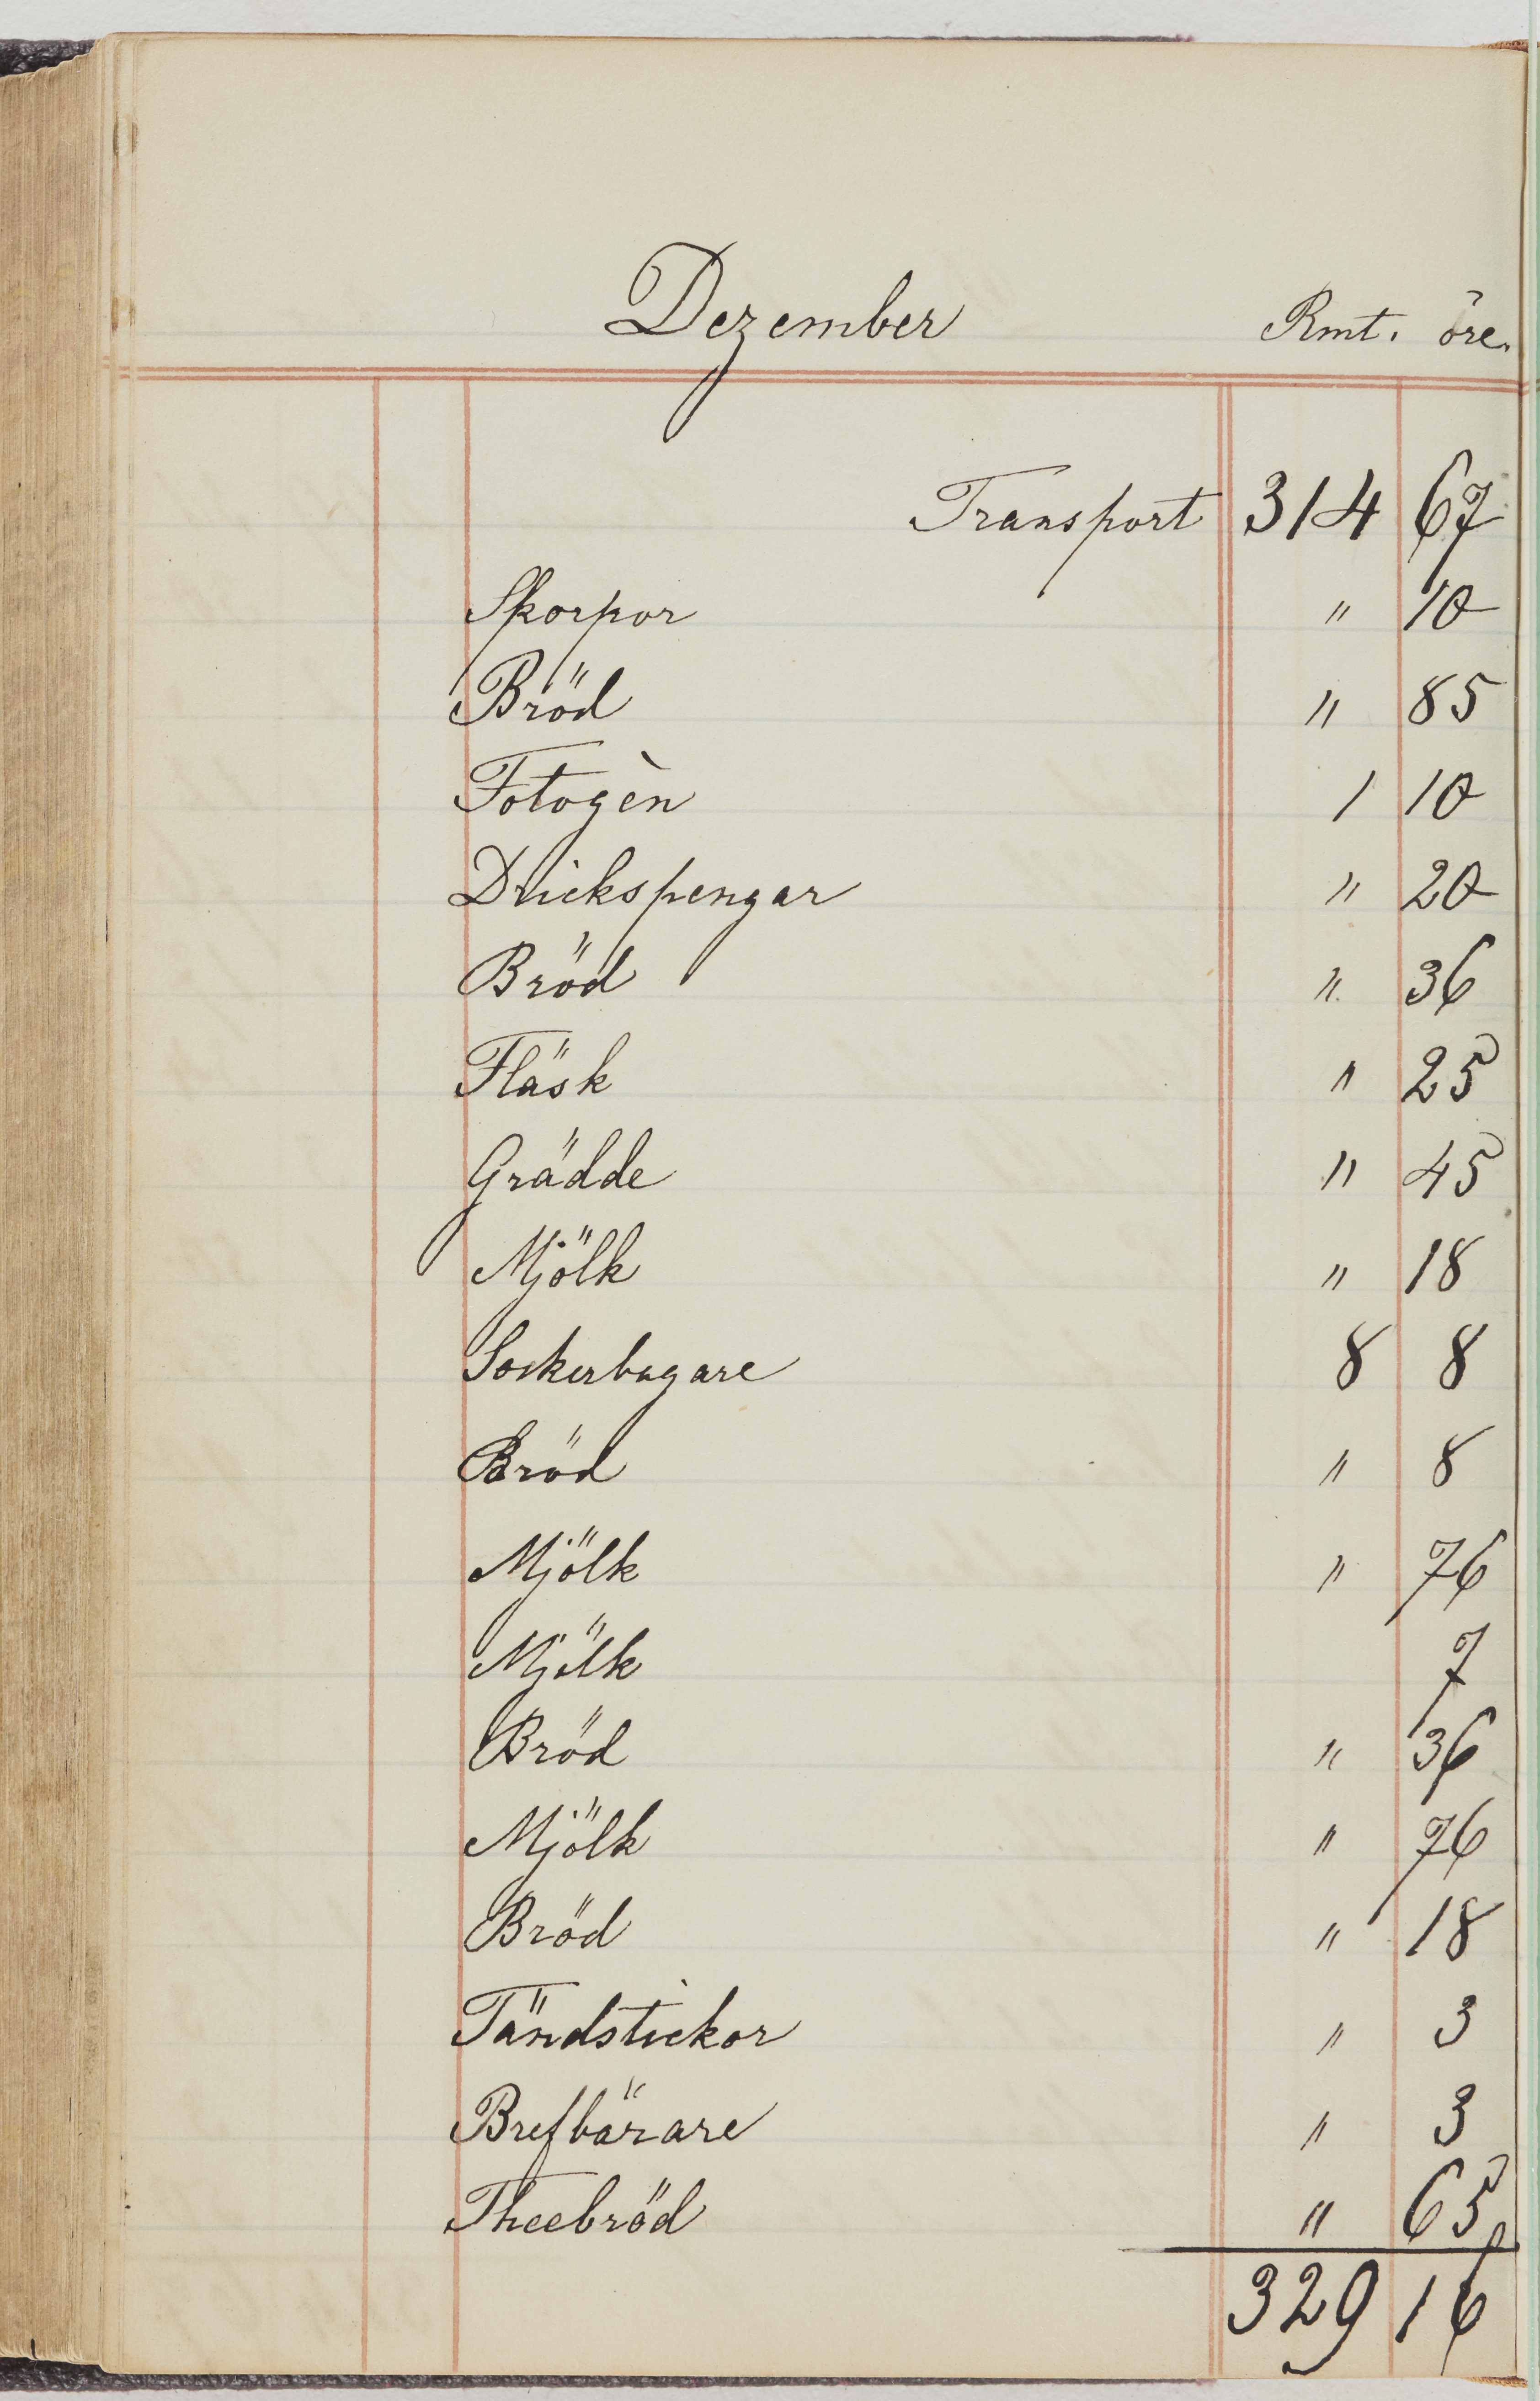 Dezember Rmt. öre.
Transport 314 67
Skorpor " 10
Bröd " 85
Fotogèn 1 10
Drickspengar " 20
Bröd " 36
Fläsk " 25
Grädde " 45
Mjölk " 18
Sockerbagare 8 8
Bröd " 8
Mjölk " 76
Mjölk 7
Bröd " 36
Mjölk " 76
Bröd " 18
Tändstickor " 3
Brefbärare " 3
Theebröd " 65
329 16